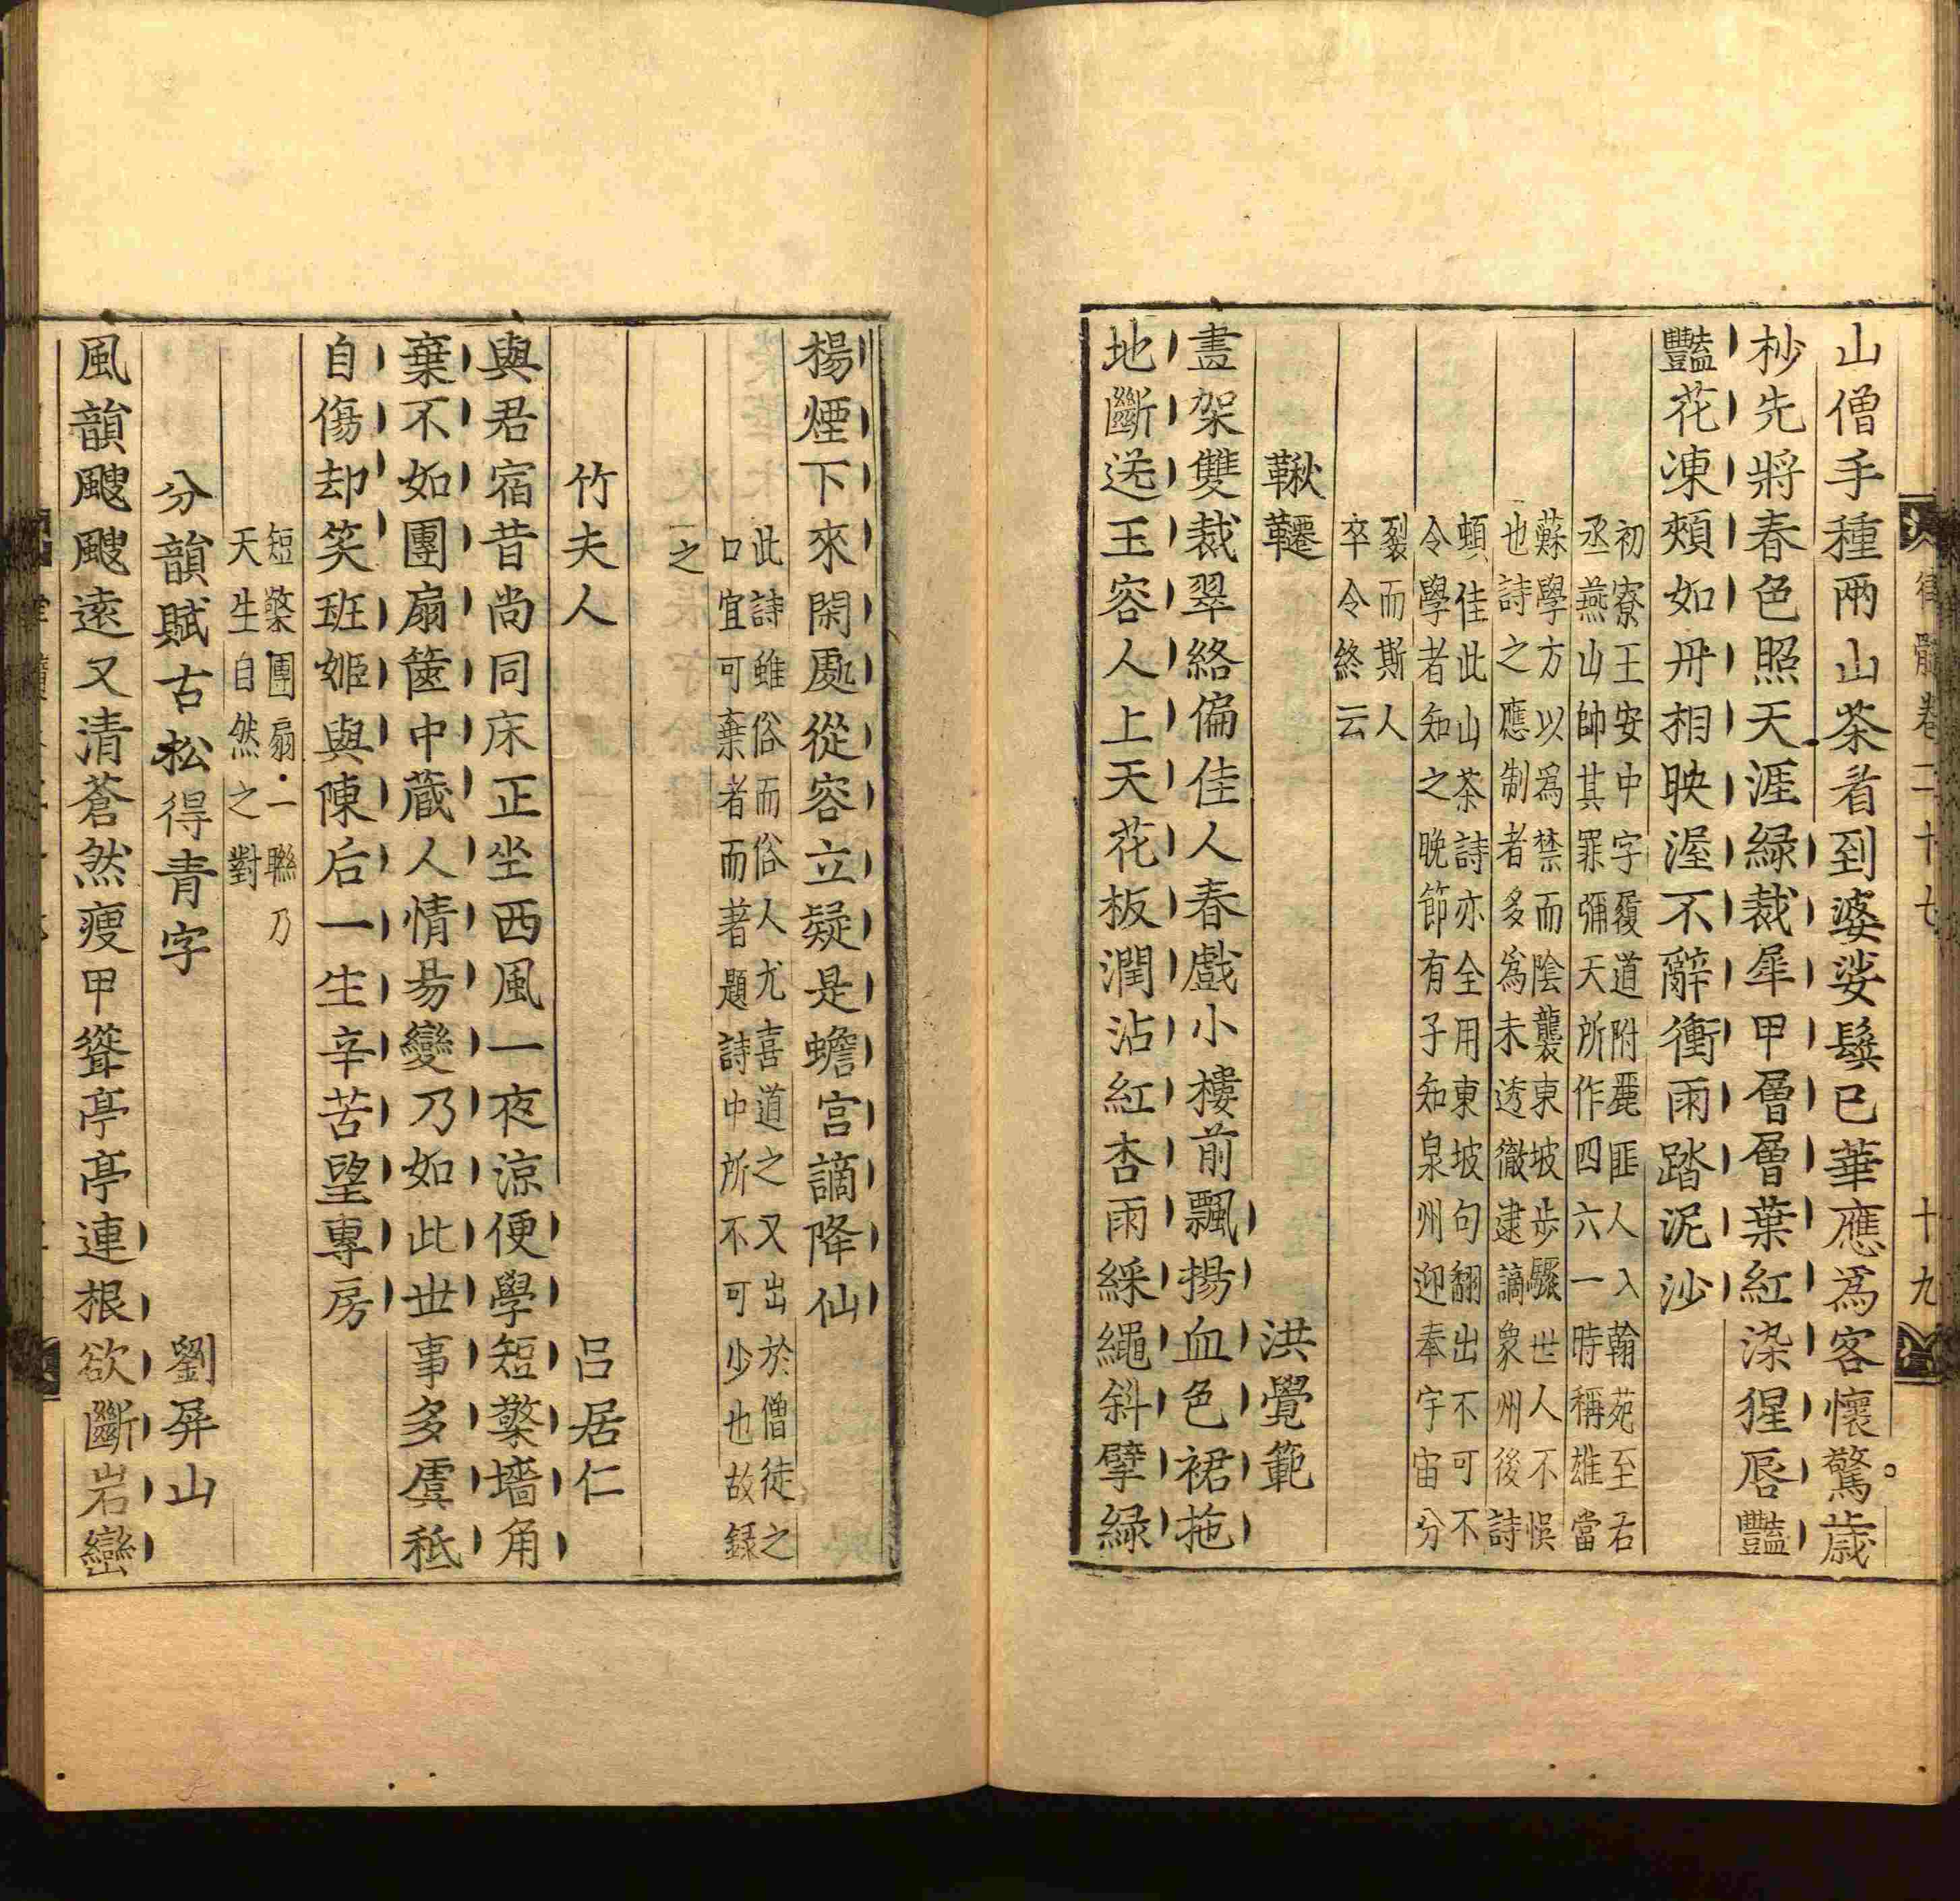 山僧手種兩山茶看到婆娑鬓已華應爲客懷驚歳
杪先將春色照天涯緑裁犀甲層層葉紅染猩唇豔
豔花凍頰如丹相映渥不辭衝雨踏泥沙
初寮王安中字履道附麗匪人入翰苑至右
丞燕山帥其罪彌天所作四六一時稱雄當
蘇學方以爲禁而陰襲東坡步驟世人不悞
也詩之應制者多爲未透徹逮謫象州後詩
頓佳此山茶詩亦全用東坡句翻出不可不
令學者知之晩節有子知泉州迎奉宇宙分
裂而斯人
卒令終云
鞦韆
洪覺範
畫架雙裁翠絡偏佳人春戲小樓前飄揚血色裙拖
地斷送玉容人上天花板潤沾紅杏雨綵繩斜擘緑
律髓卷二十七
十九
楊煙下來閑處從容立疑是蟾宫謫降仙
此詩雖俗而俗人尤喜道之又出於僧徒之
口宜可棄者而著題詩中所不可少也故録
之
竹夫人
吕居仁
與君宿昔尚同床正坐西風一夜涼便學短檠墻角
棄不如團扇篋中蔵人情易變乃如此世事多虞秖
自傷却笑班姬與陳后一生辛苦望專房
短檠團扇一聯乃
天生自然之對
分韻賦古松得青字
劉屏山
風韻颼颼遠又清蒼煞瘦甲聳亭亭連根欲斷岩巒